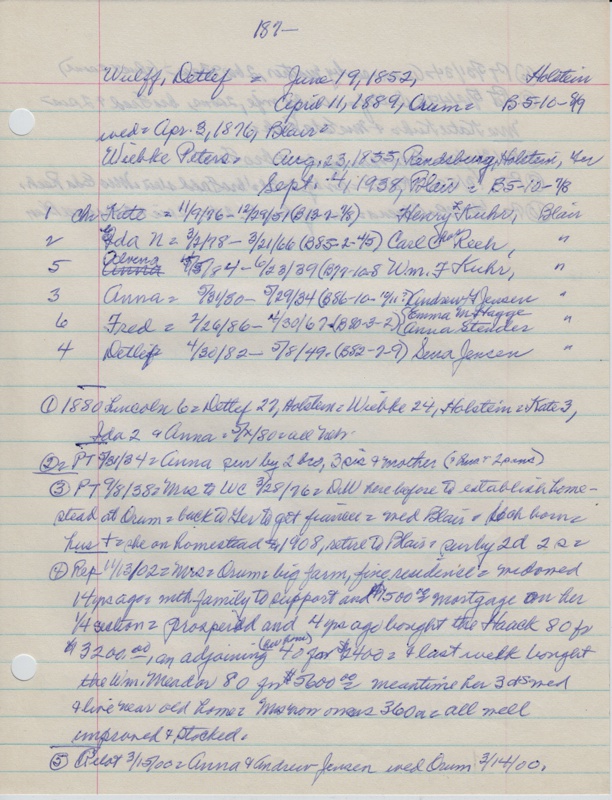 187-
Wulff, Detlef = June 19, 1852, Holstein
April 11, 1889, Orum = B-5-10-8/9
wed = Apr. 3, 1876, Blair =
Wiebke Peters = Aug. 23, 1855, Rendsburg, Holstein, Ger
Sept. 4, 1938, Blair = B5-10-7/8
1 ch Kate = 11/9/76 - 12/29/51 (B13-2-7/8) Henry Kuhr, Blair
2 Ida N = 3/2/78 - 3/21/66 (B85-2-4/5) Carl Reeh, "
5 Alvena Anna /84 - 6/23/39 Wm. F Kuhr, "
3 Anna = 5/31/80 - 5/29/34 (B86-10- Andrew Jensen "
6 Fred = 2/26/86 - 4/30/67 - (B80-3-2) {Emma M. Hagge
Anna Stender "
4 Detlef 4/30/82 - 5/8/49. (B52-7-9) Sena Jensen "
① 1880 Lincoln 6 = Detlef 27, Holstein = Wiebke 24, Holstein = Kate 3,
Ida 2 & Anna = /80 = all Neb.
②= PT 5/31/34 = Anna sur by 2 bro, 3 sis & mother
③ PT 9/8/38 = Mrs to WC 3/28/76 = DW here before to establish home-
stead at Orum = back to Ger to get fiancee = wed Blair = 6 ch born =
hus + = she on homestead 1908, retire to Blair = sur by 2d 2s =
④ Rep 11/13/02 = Mrs = Orum = big farm, fine residence = widowed
14 yrs ago = with family to support and $1500 mortgage on her
1/4 section = prospered and 4 yrs ago bought the Haack 80 for
$3200.00, an adjoining 40 for $2400 = & last week bought
the Wm. Meador 80 for $5600 = meantime her 3 ds wed
& live near old home = Mrs now owns 360 a = all well
improved & stocked.
⑤ Pilot 3/15/00 = Anna & Andrew Jensen wed Orum 3/14/00.